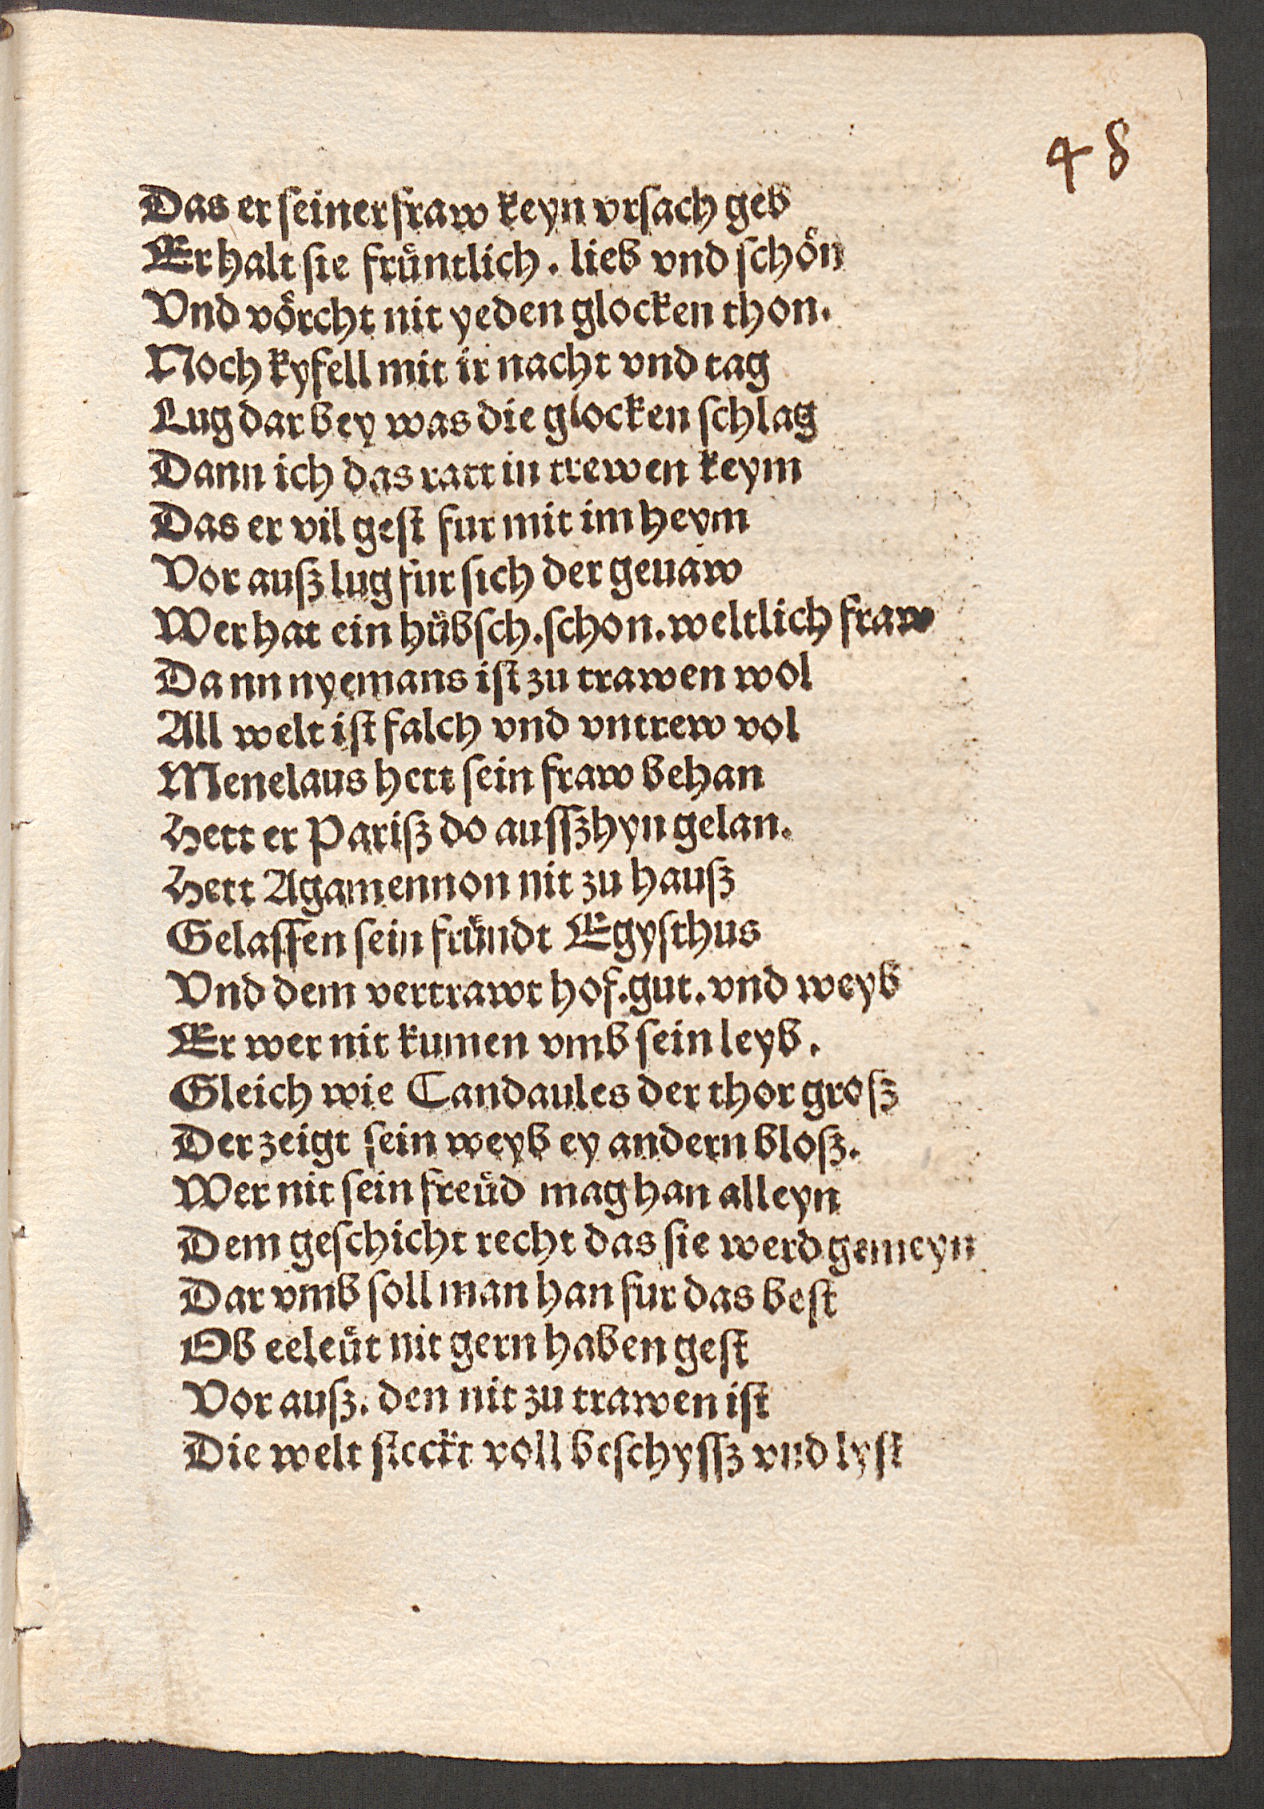 48
Das er ſeiner fraw keyn vrſach geb
Er halt ſie fruͤntlich. lieb vnd ſchoͤn
Vnd voͤrcht nit yeden glocken thon.
Noch kyfell mit ir nacht vnd tag
Lug dar bey was die glocken ſchlag
Dann ich das ratt in trewen keym
Das er vil geſt fur mit im heym
Vor auſz lug fur ſich der genaw
Wer hat ein huͤbſch. ſchon. weltlich fraw
Dann nyemans iſt zu trawen wol
All welt iſt falch vnd vntrew vol
Menelaus hett ſein fraw behan
Hett er Pariſz do auſſzhyn gelan.
Hett Agamennon nit zu hauſz
Gelaſſen ſein fruͤndt Egyſthus
Vnd dem vertrawt hof. gut. vnd weyb
Er wer nit kumen vmb ſein leyb.
Gleich wie Candaules der thor groſz
Der zeigt ſein weyb ey andern bloſz.
Wer nit ſein freuͤd mag han alleyn
Dem geſchicht recht das ſie werd gemeyn
Dar vmb ſoll man han fur das beſt
Ob eeleuͤt nit gern haben geſt
Vor auſz. den nit zu trawen iſt
Die welt ſteckt voll beſchyſſz vnd lyſt